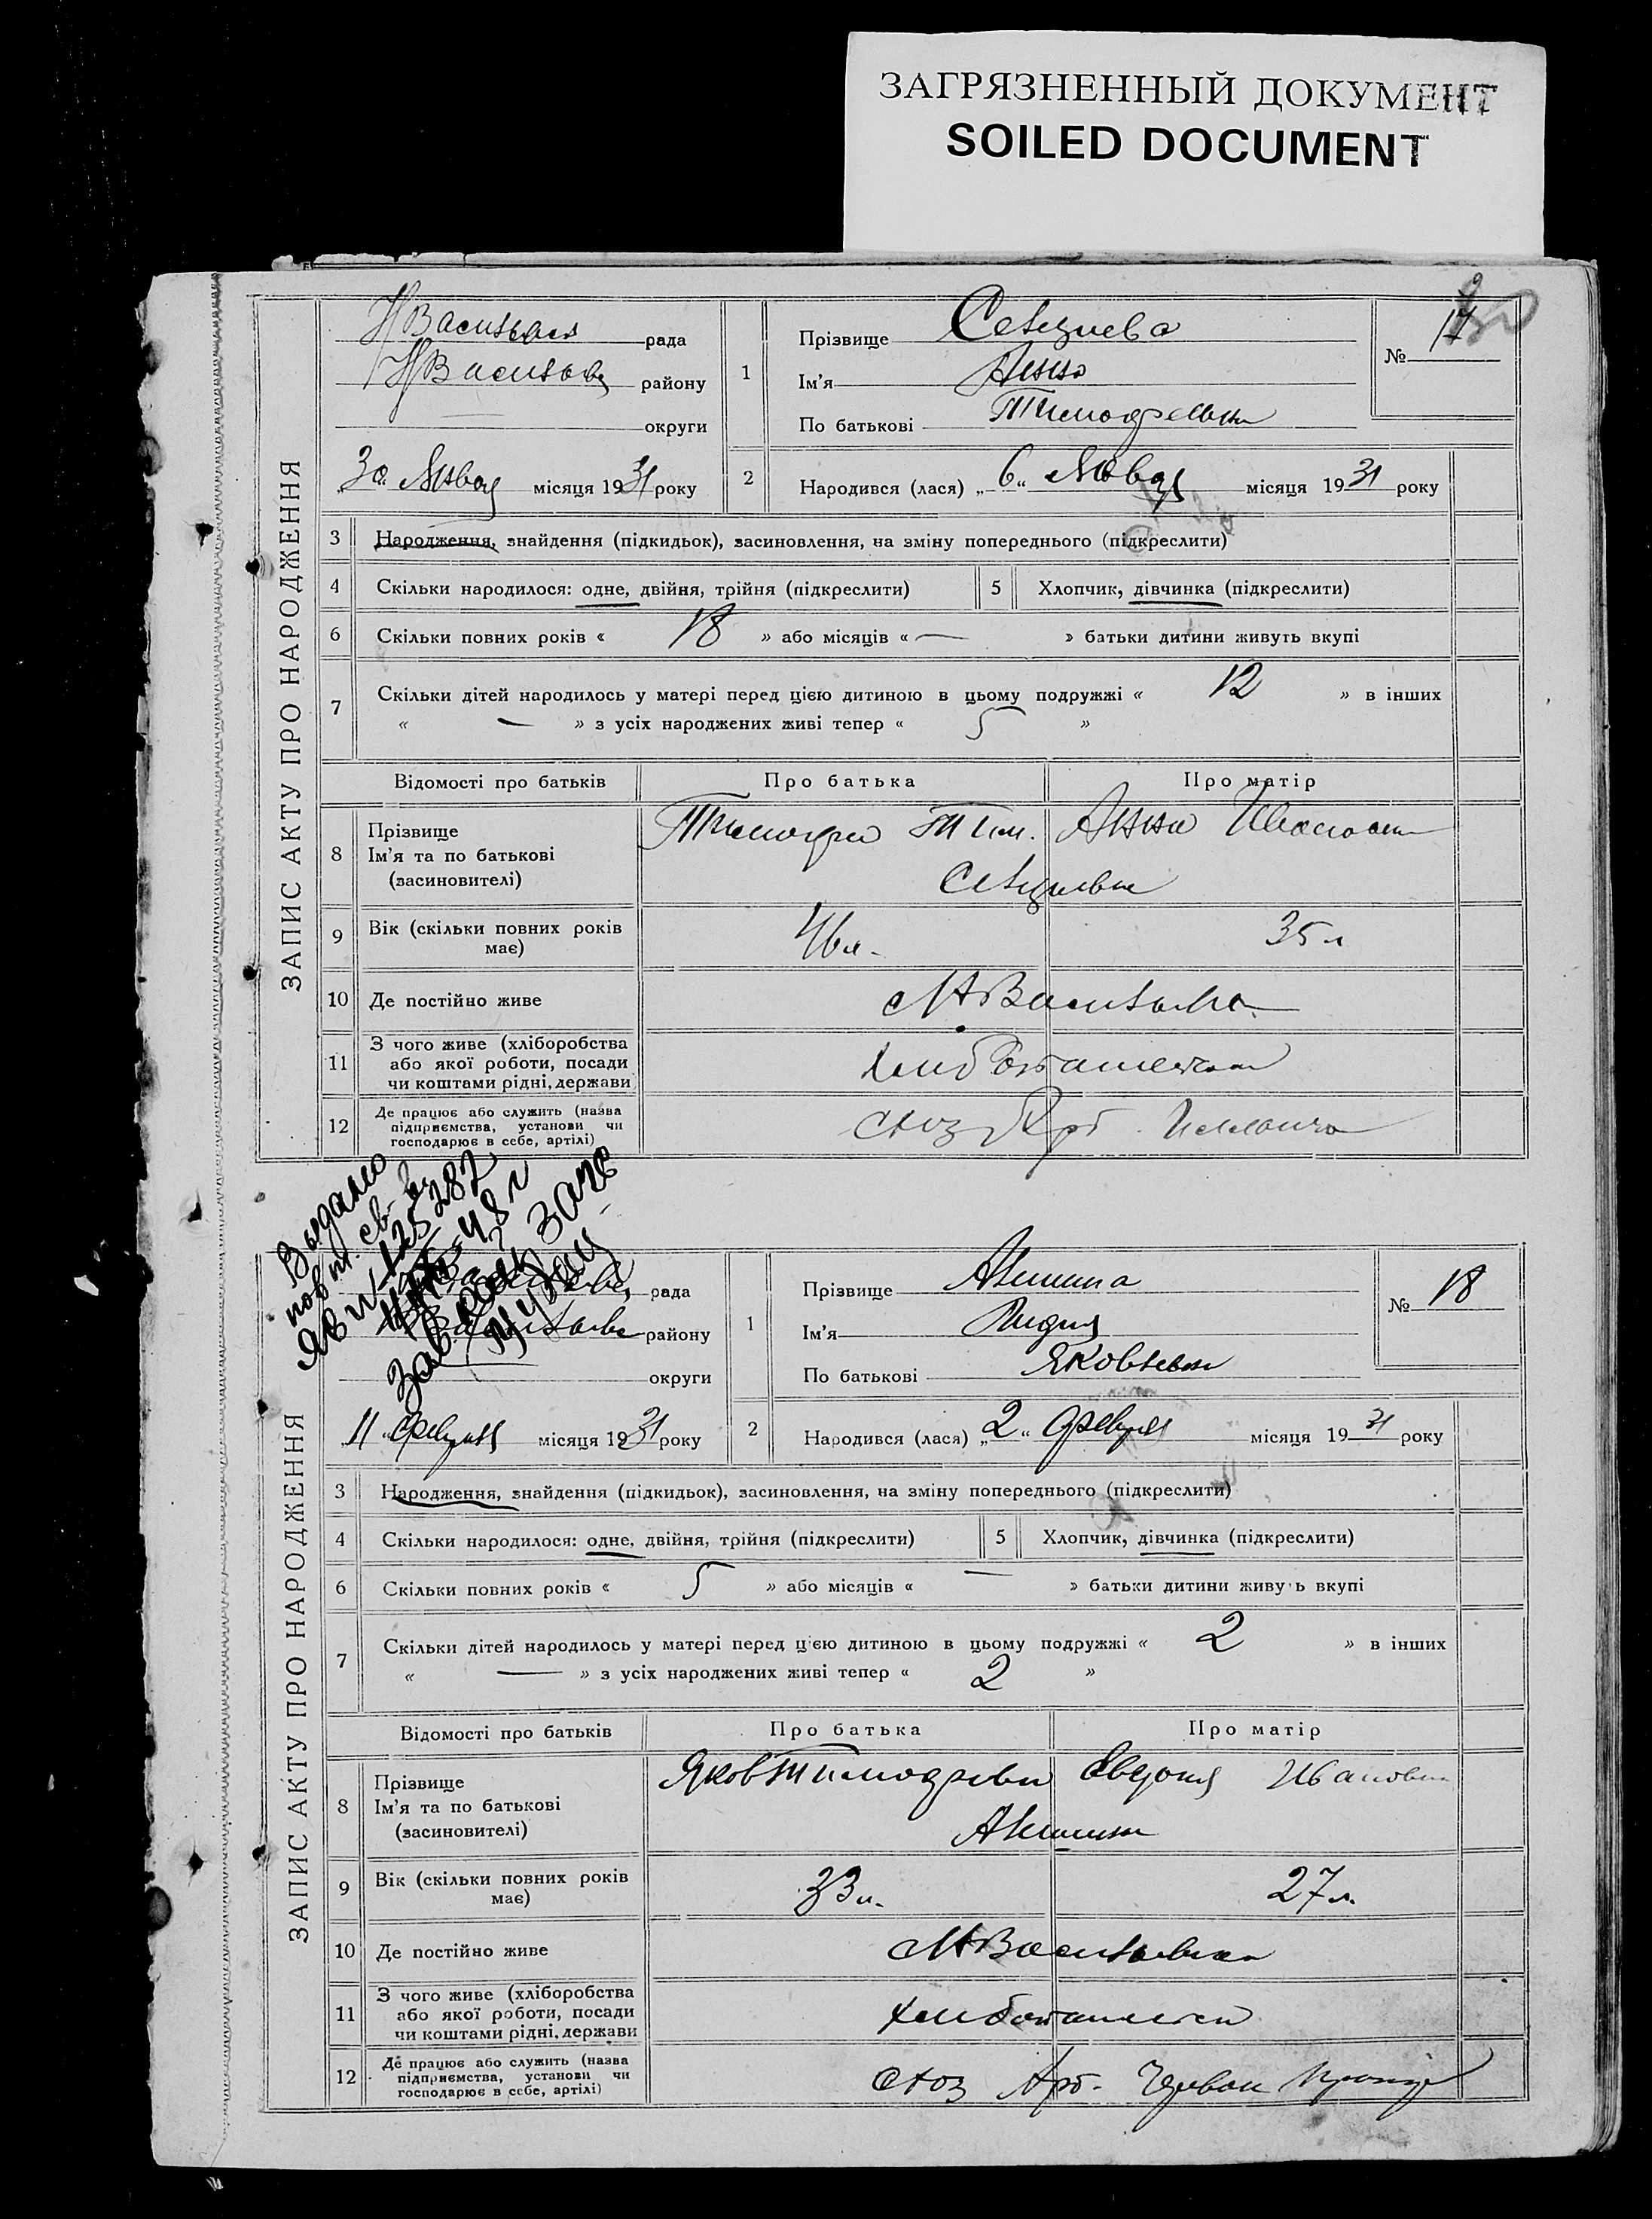 ЗАГРЯЗНЕННЫЙ ДОКУМЕНТ
SOILED DOCUMENT
ЗАПИС АКТУ ПРО НАРОДЖЕННЯ
рада
району
округи
30 Января місяця 1931 року
1
Прізвище
Ім'я Анна
По батькові Тимофеевна
№ 17
2
Народився (лася) „6“ Января місяця 1931 року
3 Народження, знайдення (підкидьок), засиновлення, на зміну попереднього (підкреслити)
4 Скільки народилося: одне, двійня, трійня (підкреслити)
5 Хлопчик, дівчинка (підкреслити)
6 Скільки повних років « 18 » або місяців « — » батьки дитини живуть вкупі
7 Скільки дітей народилось у матері перед цією дитиною в цьому подружжі « 12 » в інших
« — » з усіх народжених живі тепер « 5 »
Відомості про батьків Про батька Про матір
8 Прізвище
Ім'я та по батькові
(засиновителі)
Тимофей Тим. Анна
9 Вік (скільки повних років має) 46 л. 35 л
10 Де постійно живе
11 З чого живе (хліборобства
або якої роботи, посади
чи коштами рідні, держави
12 Де працює або служить (назва
підприємства, установи чи
господарює в себе, артілі)
Соз Арб.
Выдано
повт. св-
125287
48 г
ЗАПИС АКТУ ПРО НАРОДЖЕННЯ
рада
району
округи
11 Февраля місяця 1931 року
1
Прізвище Акишина
Ім'я Лидия
По батькові Яковлевна
№ 18
2
Народився (лася) „2“ Февраля місяця 1931 року
3 Народження, знайдення (підкидьок), засиновлення, на зміну попереднього (підкреслити)
4 Скільки народилося: одне, двійня, трійня (підкреслити)
5 Хлопчик, дівчинка (підкреслити)
6 Скільки повних років « 5 » або місяців « — » батьки дитини живуь вкупі
7 Скільки дітей народилось у матері перед цією дитиною в цьому подружжі « 2 » в інших
« — » з усіх народжених живі тепер « 2 »
Відомості про батьків Про батька Про матір
8 Прізвище
Ім'я та по батькові
(засиновителі)
Яков Тимофеевич Евдокия Ивановна
Акишины
9 Вік (скільки повних років має) 33 л. 27 л.
10 Де постійно живе
11 З чого живе (хліборобства
або якої роботи, посади
чи коштами рідні, держави
12 Де працює або служить (назва
підприємства, установи чи
господарює в себе, артілі)
Соз Арб.